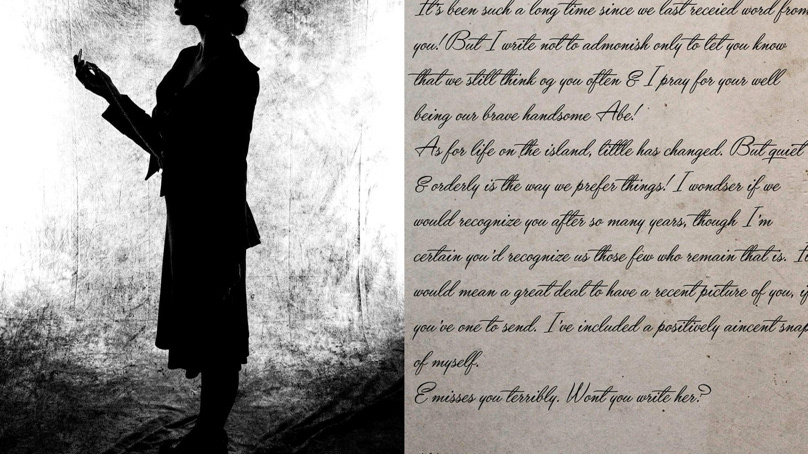 It's been such a long time since we last receied word from
you! But I write not to admonish only to let you know
that we still think og you often & I pray for your well
being our brave handsome Abe!
As for life on the island, little has changed. But quiet
& orderly is the way we prefer things! I wondser if we
would recognize you after so many years, though I'm
certain you'd recognize us those few who remain that is. It
would mean a great deal to have a recent picture of you, if
you've one to send. I've included a positively aincent snap
of myself.
E misses you terribly. Wont you write her?